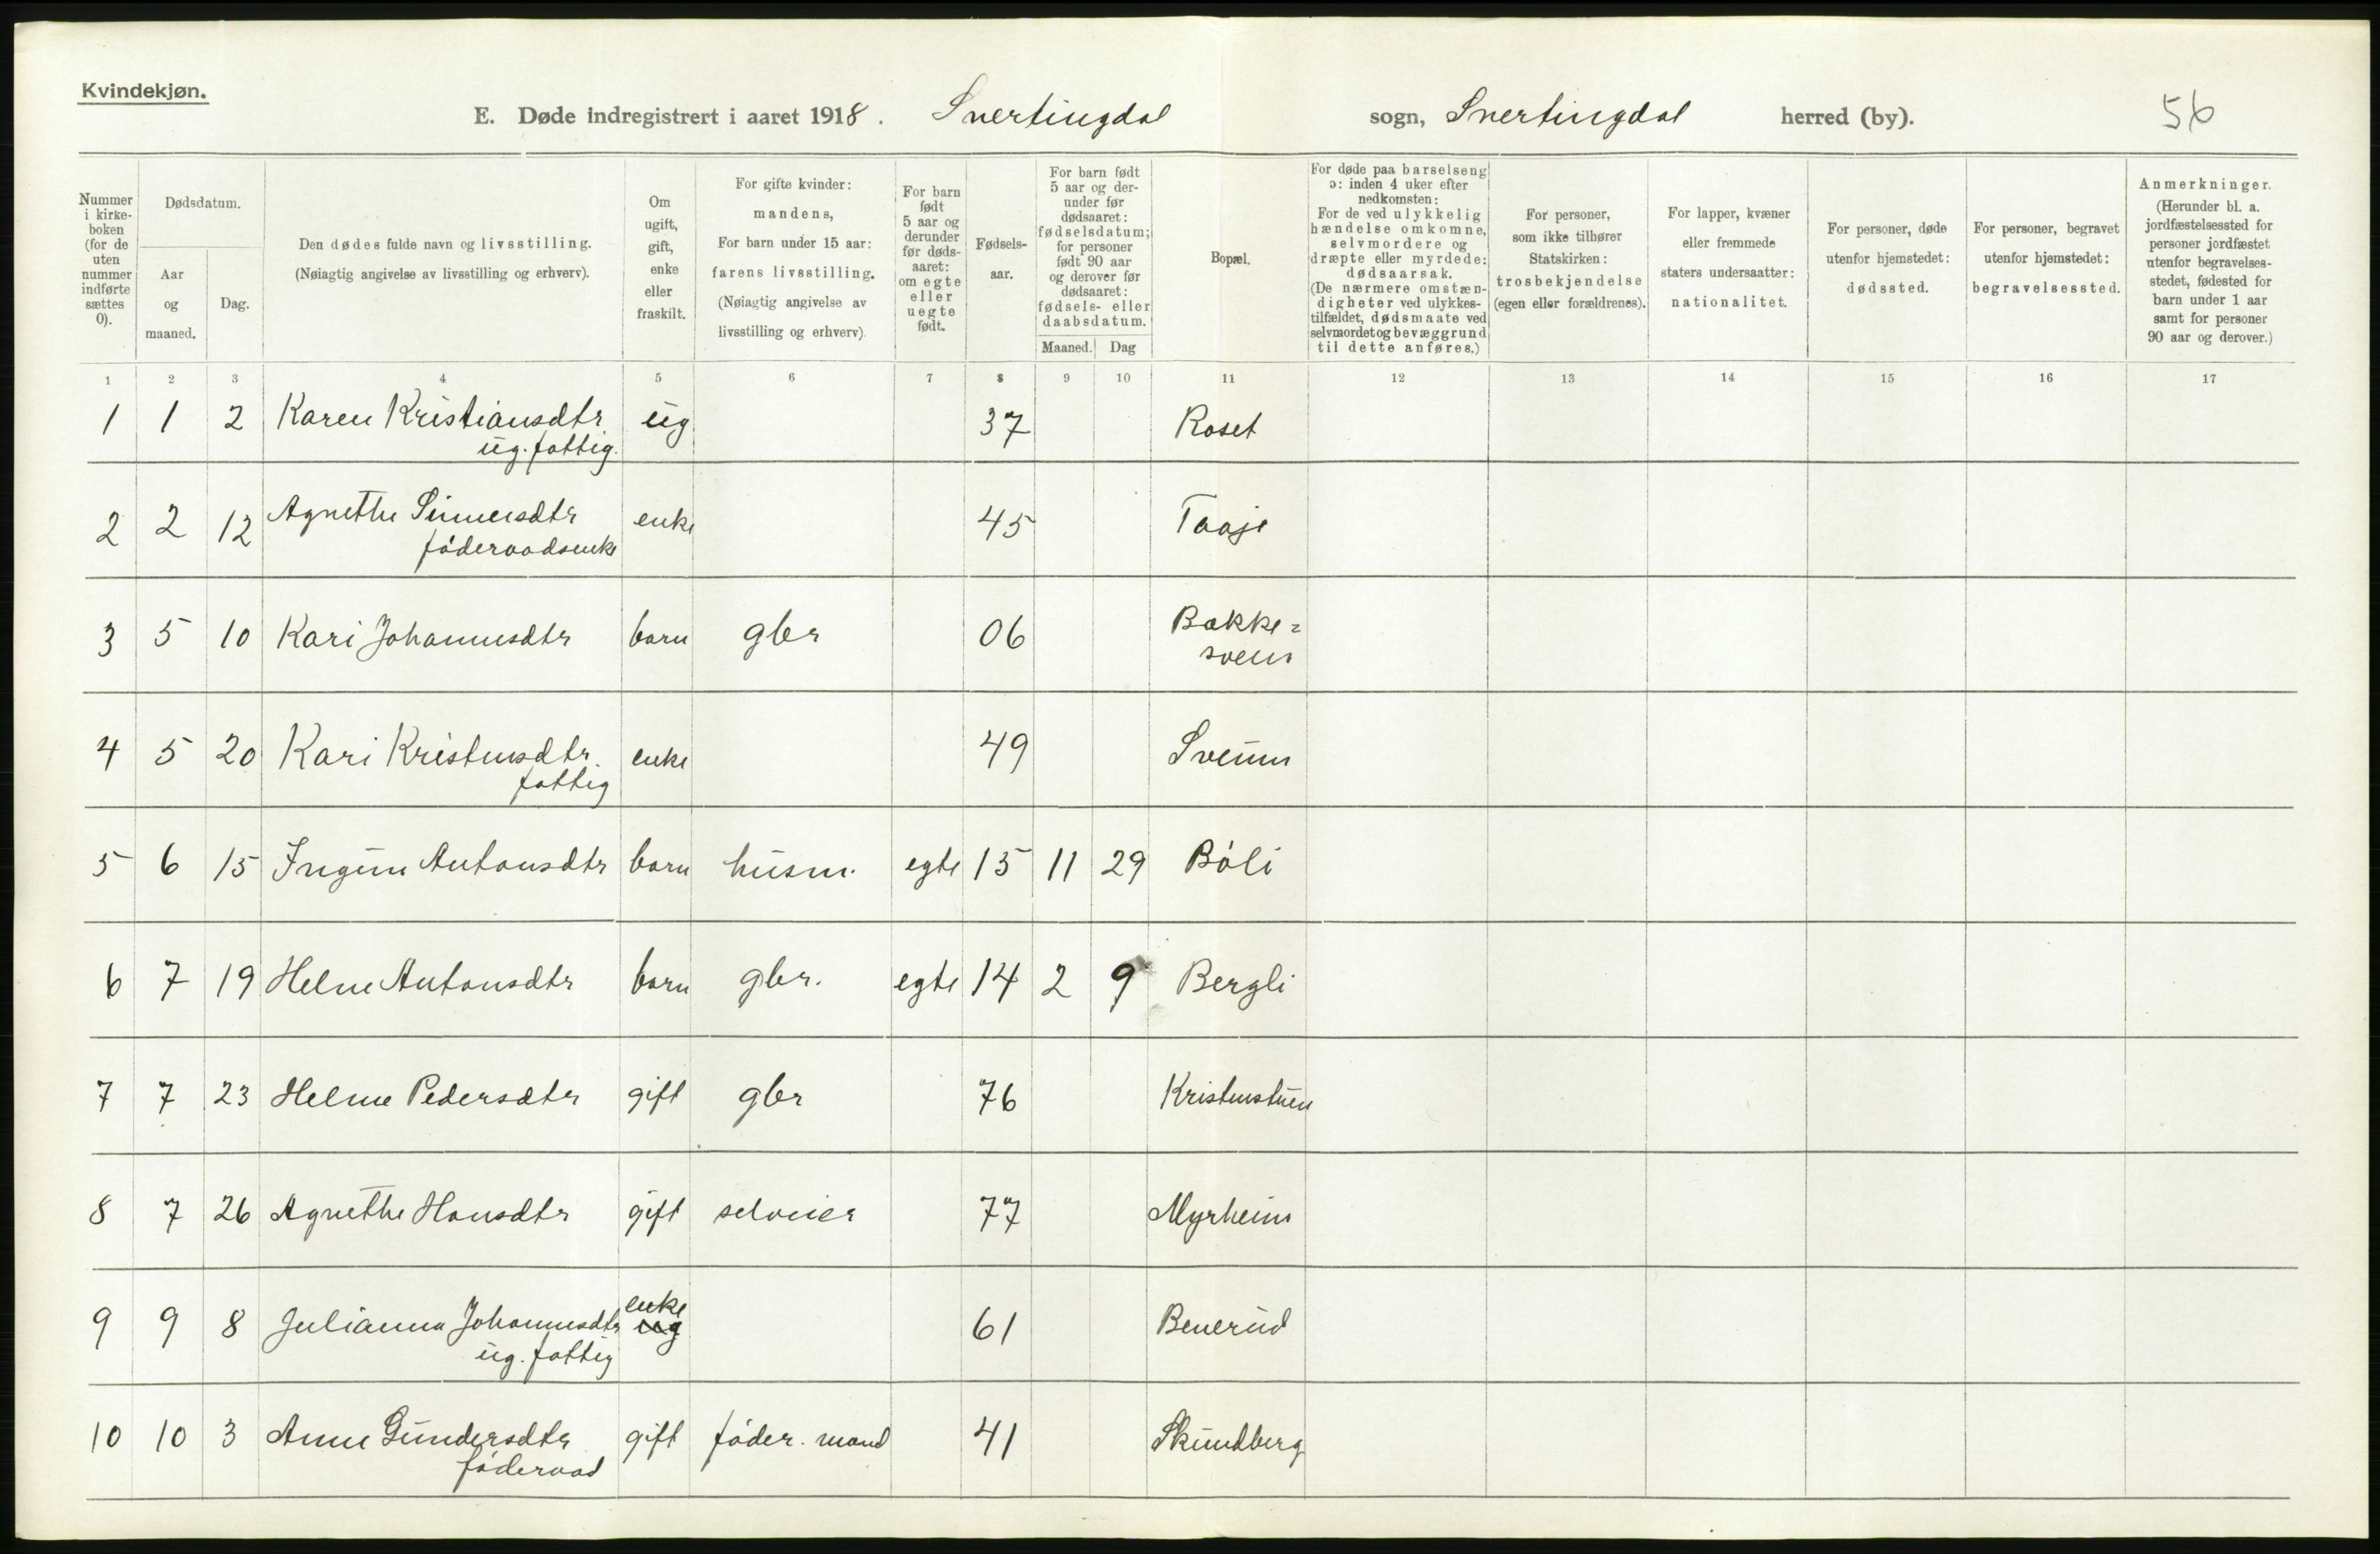 Kvindekjøn.
E. Døde indregistrert i aaret 1918. Snertingdal sogn, Snertingdal herred (by). 56
Nummer i kirke-boken (for de uten nummer indførte sættes 0).
Dødsdatum.
Aar og maaned.
Dag.
Den dødes fulde navn og livsstilling.
(Nøiagtig angivelse av livsstilling og erhverv).
Om ugift, gift, enke eller fraskilt.
For gifte kvinder: mandens,
For barn under 15 aar: farens livsstilling.
(Nøiagtig angivelse av livsstilling og erhverv).
For barn født 5 aar og derunder før døds-aaret: om egte eller uegte født.
Fødsels-aar.
For barn født 5 aar og der-under før dødsaaret: fødselsdatum; for personer født 90 aar og derover før dødsaaret: fødsels- eller daabsdatum.
Maaned. Dag
Bopæl.
For døde paa barselseng ɔ: inden 4 uker efter nedkomsten:
For de ved ulykkelig hændelse omkomne, selvmordere og dræpte eller myrdede: dødsaarsak.
(De nærmere omstæn-digheter ved ulykkes-tilfældet, dødsmaate ved selvmordet og bevæggrund til dette anføres.)
For personer, som ikke tilhører Statskirken: trosbekjendelse (egen eller forældrenes).
For lapper, kvæner eller fremmede staters undersaatter: nationalitet.
For personer, døde utenfor hjemstedet: dødssted.
For personer, begravet utenfor hjemstedet: begravelsessted.
Anmerkninger.
(Herunder bl. a. jordfæstelsessted for personer jordfæstet utenfor begravelses-stedet, fødested for barn under 1 aar samt for personer 90 aar og derover.)
1 2 3 4 5 6 7 8 9 10 11 12 13 14 15 16 17
1 1 2 Karen Kristiansdtr. ug 37 Roset
ug. fattig.
2 2 12 Agnethe Simensdtr enke 45 Taaje
föderaadsenke
3 5 10 Kari Johannesdtr barn gbr 06 Bakke=
sveen
4 5 20 Kari Kristensdtr. enke 49 Sveum
fattig
5 6 15 Ingun Antonsdtr barn husm. egte 15 11 29 Böli
6 7 19 Helene Antonsdtr barn gbr. egte 14 2 9 Bergli
7 7 23 Helene Pedersdtr gift gbr 76 Kristenstuen
8 7 26 Agnethe Hansdtr gift selveier 77 Myrheim
enke
9 9 8 Julianna Johannesdtr ug 61 Benerud
ug. fattig
10 10 3 Anne Gundersdtr gift föder. mand 41 Skundberg
föderaad